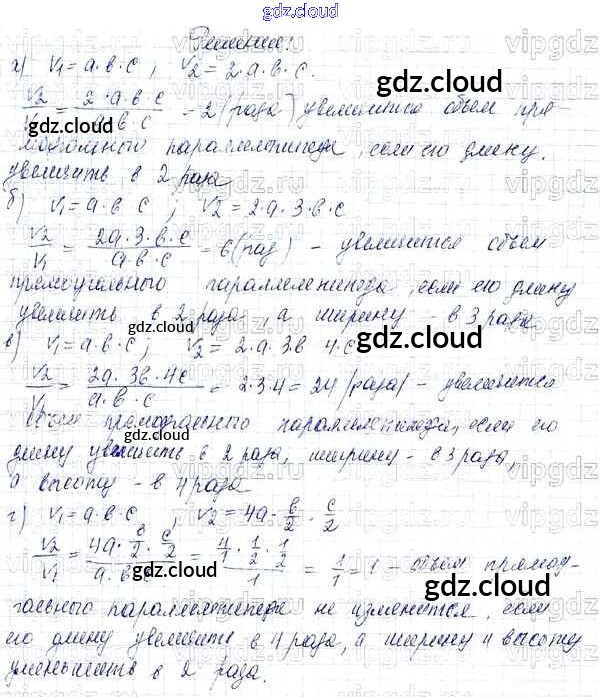 gdz.cloud
Решение:
а) V₁ = a·b·c, V₂ = 2·a·b·c.
V₂/V₁ = 2·a·b·c/a·b·c = 2 (раза) увеличится объем пря-
моугольного параллелепипеда, если его длину
увеличить в 2 раза
б) V₁ = a·b·c; V₂ = 2·a·3·b·c
V₂/V₁ = 2a·3·b·c/a·b·c = 6 (раз) – увеличится объем
прямоугольного параллелепипеда, если его длину
увеличить в 2 раза, а ширину – в 3 раза
в) V₁ = a·b·c; V₂ = 2·a·3·b 4·c
V₂/V₁ = 2a·3b·4c/a·b·c = 2·3·4 = 24 (раза) – увеличится
объем прямоугольного параллелепипеда, если его
длину увеличить в 2 раза, ширину – в 3 раза,
а высоту – в 4 раза
г) V₁ = a·b·c, V₂ = 4a·b/2·c/2
V₂/V₁ = 4a·b/2·c/2/a·b·c = 4/1·1/2·1/2/1 = 1/1 = 1 – объем прямоу-
гольного параллелепипеда не изменится, если
его длину увеличить в 4 раза, а ширину и высоту
уменьшить в 2 раза.
gdz.cloud
gdz.cloud
gdz.cloud
gdz.cloud
gdz.cloud
gdz.cloud
gdz.cloud
gdz.cloud